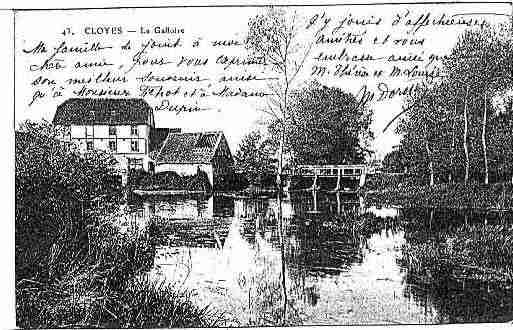 43. CLOYES — Le Galloire
Ma famille se joint à moi
chère amie, pour vous exprimer
son meilleur souvenir ainsi
qu'à Monsieur et à Madame
Dupin.
J'y joins d'affectueuses
amitiés et vous
embrasse ainsi que
M. Thérèse et M. Louise